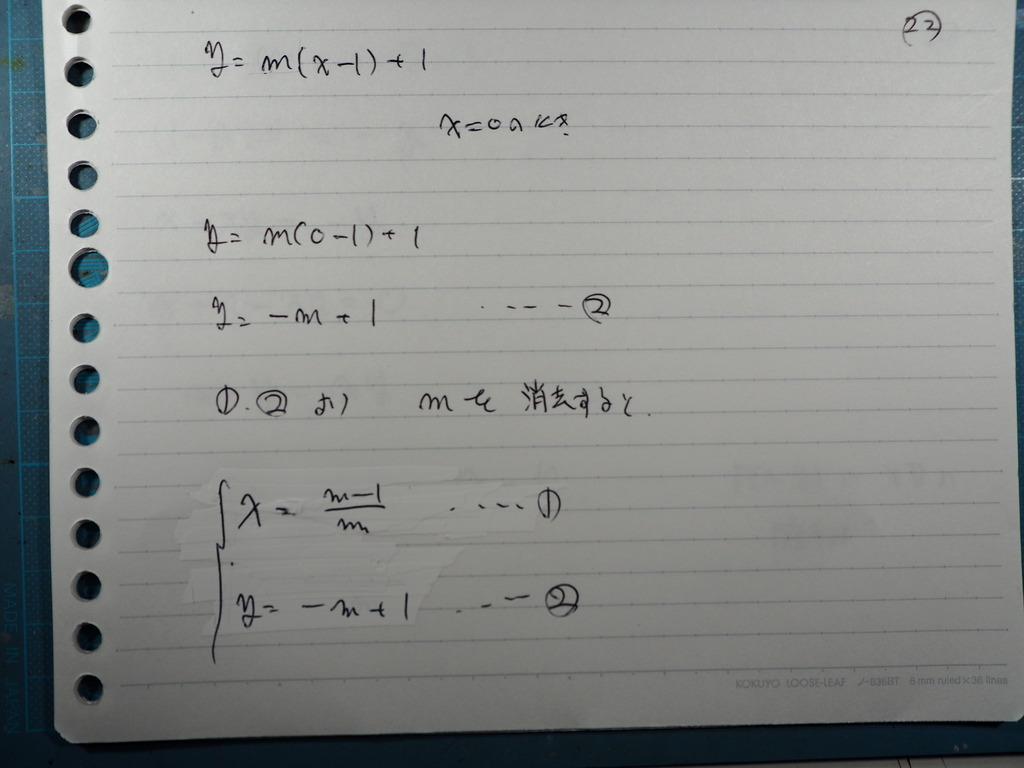 ㉒
y = m(x-1)+1
x=0のとき
y = m(0-1)+1
y = -m+1 ‥‥-②
①.② より mを 消去すると.
x = \frac{m-1}{m} ‥‥①
y = -m+1 ‥‥②
KOKUYO LOOSE-LEAF ノ-836BT 6mm ruled×36 lines
MADE IN JAPAN